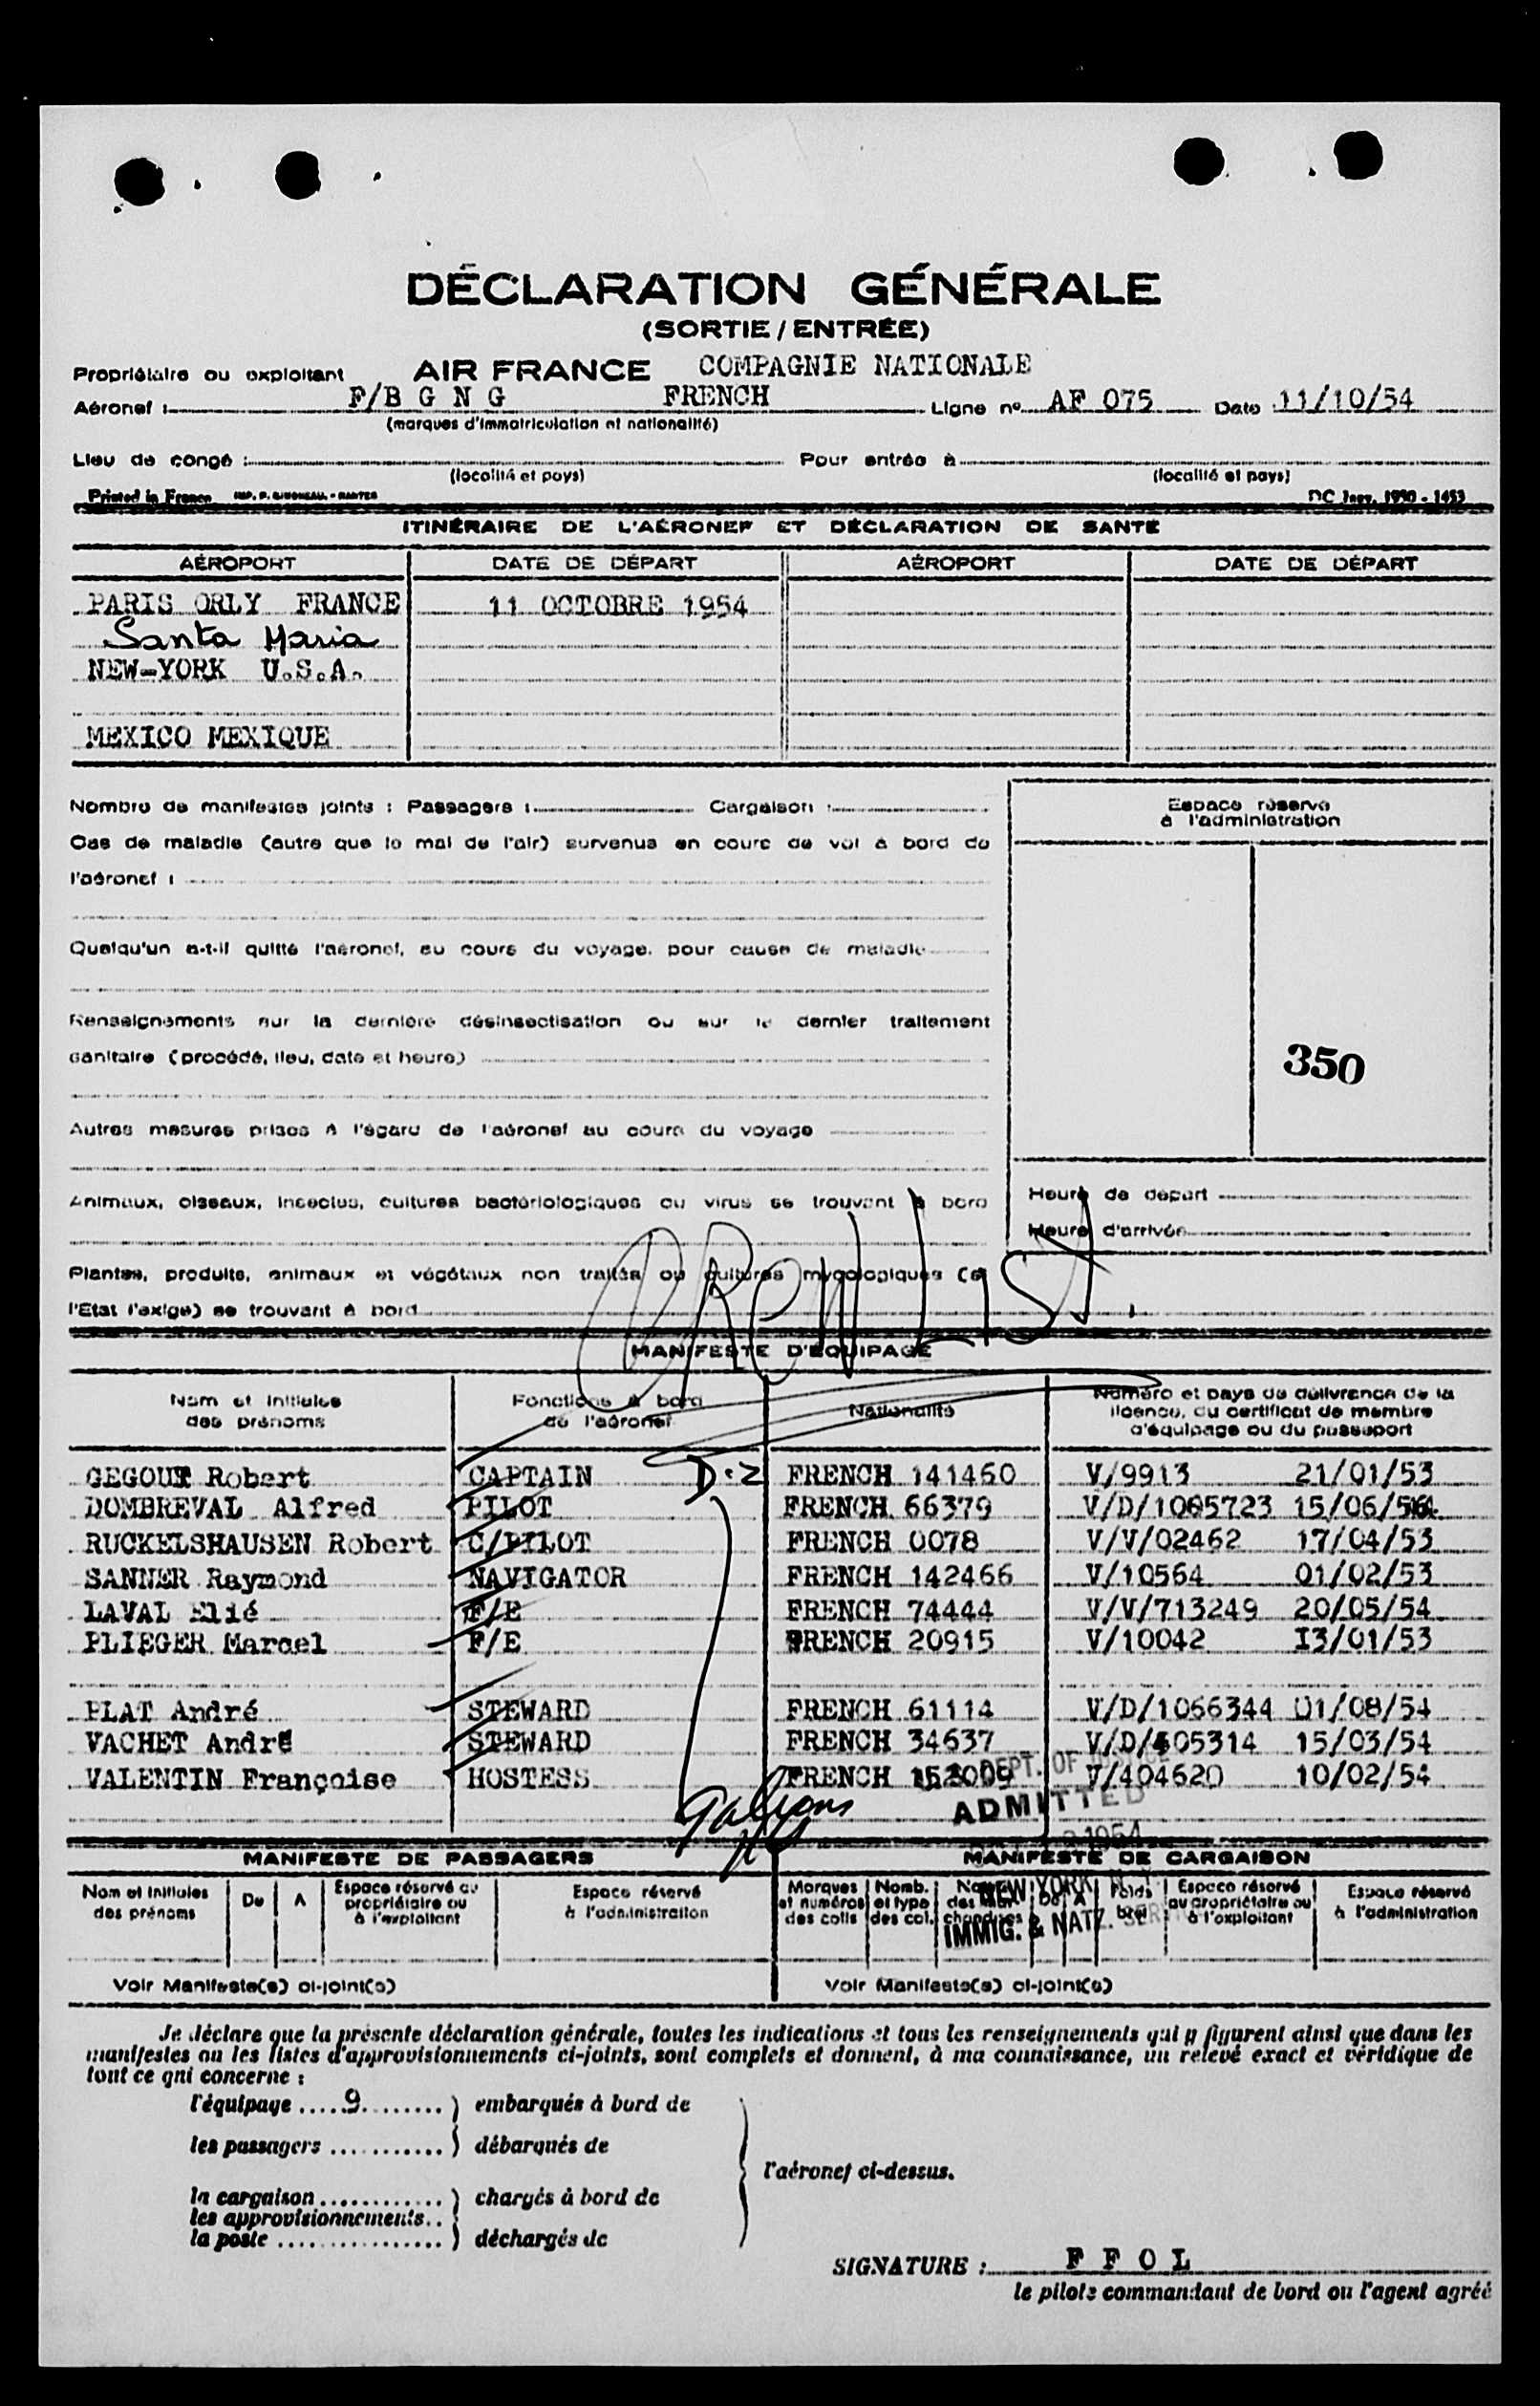 DÉCLARATION GÉNÉRALE
(SORTIE / ENTRÉE)
Propriétaire ou exploitant AIR FRANCE COMPAGNIE NATIONALE
Aéronef : F/B G N G FRENCH Ligne no AF 075 Date 11/10/54
(marques d'immatriculation et nationalité)
Lieu de congé : Pour entrée à
(localité et pays) (localité et pays)
Printed in France IMP. P. GIMONEAU. - NANTES DC Janv. 1950 - 1453
ITINÉRAIRE DE L'AÉRONEF ET DÉCLARATION DE SANTÉ
AÉROPORT DATE DE DÉPART AÉROPORT DATE DE DÉPART
PARIS ORLY FRANCE 11 OCTOBRE 1954
Santa Maria
NEW-YORK U.S.A.
MEXICO MEXIQUE
Nombre de manifestes joints : Passagers : Cargaison :
Cas de maladie (autre que le mal de l'air) survenus en cours de vol à bord de
l'aéronef :
Quelqu'un a-t-il quitté l'aéronef, au cours du voyage, pour cause de maladie
Renseignements sur la dernière désinsectisation ou sur le dernier traitement
sanitaire (procédé, lieu, date et heure)
Autres mesures prises à l'égard de l'aéronef au cours du voyage
Animaux, oiseaux, insectes, cultures bactériologiques ou virus se trouvant à bord
Plantes, produits, animaux et végétaux non traités ou cultures mycologiques (si
l'Etat l'exige) se trouvant à bord
Espace réservé
à l'administration
350
Heure de départ
Heure d'arrivée
CREW LIST
MANIFESTE D'ÉQUIPAGE
Nom et initiales
des prénoms
Fonctions à bord
de l'aéronef
Nationalité
Numéro et pays de délivrance de la
licence, du certificat de membre
d'équipage ou du passeport
GEGOUT Robert CAPTAIN D-2 FRENCH 141460 V/9913 21/01/53
DOMBREVAL Alfred PILOT FRENCH 66379 V/D/1005723 15/06/54
RUCKELSHAUSEN Robert C/PILOT FRENCH 0078 V/V/02462 17/04/53
SANNER Raymond NAVIGATOR FRENCH 142466 V/10564 01/02/53
LAVAL Elié F/E FRENCH 74444 V/V/713249 20/05/54
PLIEGER Marcel F/E FRENCH 20915 V/10042 I3/01/53
PLAT André STEWARD FRENCH 61114 V/D/1066344 01/08/54
VACHET André STEWARD FRENCH 34637 V/D/405314 15/03/54
VALENTIN Françoise HOSTESS FRENCH 152009 V/404620 10/02/54
DEPT. OF JUSTICE
ADMITTED
1954
NEW YORK, N.Y.
IMMIG. & NATZ. SERV
MANIFESTE DE PASSAGERS MANIFESTE DE CARGAISON
Nom et initiales
des prénoms
De
A
Espace réservé au
propriétaire ou
à l'exploitant
Espace réservé
à l'administration
Marques
et numéros
des colis
Nomb.
et type
des col.
Nature
des mar-
chandises
De
A
Poids
brut
Espace réservé
au propriétaire ou
à l'exploitant
Espace réservé
à l'administration
Voir Manifeste(s) ci-joint(s) Voir Manifeste(s) ci-joint(s)
Je déclare que la présente déclaration générale, toutes les indications et tous les renseignements qui y figurent ainsi que dans les
manifestes ou les listes d'approvisionnements ci-joints, sont complets et donnent, à ma connaissance, un relevé exact et véridique de
tout ce qui concerne :
l'équipage .....9........ ) embarqués à bord de
les passagers ........... ) débarqués de
l'aéronef ci-dessus.
la cargaison ............ ) chargés à bord de
les approvisionnements..
la poste ................ ) déchargés de
SIGNATURE : F F O L
le pilote commandant de bord ou l'agent agréé